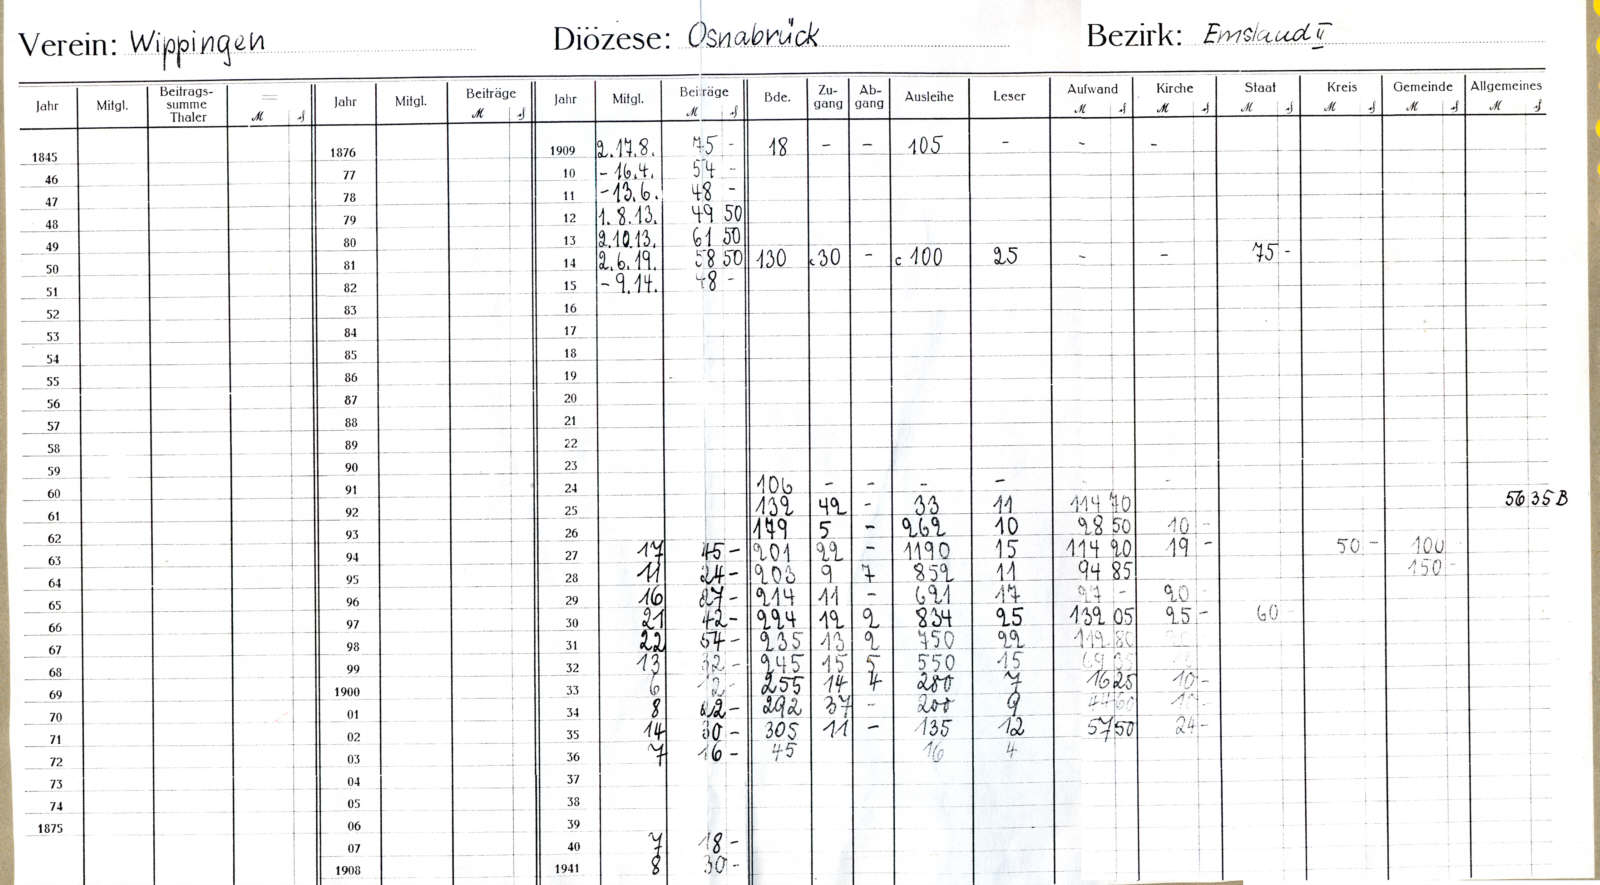 Verein: Wippingen Diözese: Osnabrück Bezirk: Emsland II
Jahr Mitgl. Beitrags-summe Thaler = M ₰ Jahr Mitgl. Beiträge M ₰ Jahr Mitgl. Beiträge M ₰ Bde. Zu-gang Ab-gang Ausleihe Leser Aufwand M ₰ Kirche M ₰ Staat M ₰ Kreis M ₰ Gemeinde M ₰ Allgemeines M ₰
1845 1876 1909 2.17.8. 75 - 18 - - 105 - - -
46 77 10 - 16.4. 54 -
47 78 11 - 13.6. 48 -
48 79 12 1.8.13. 49 50
49 80 13 2.10.13. 61 50
50 81 14 2.6.19. 58 50 130 c 30 - c 100 25 - - 75 -
51 82 15 - 9.14. 48 -
52 83 16
53 84 17
54 85 18
55 86 19
56 87 20
57 88 21
58 89 22
59 90 23
60 91 24 106 - - - - -
61 92 25 132 42 - 33 11 114 70 56 35 B
62 93 26 179 5 - 262 10 28 50 10 -
63 94 27 17 45 - 201 22 - 1190 15 114 20 19 - 50 - 100 -
64 95 28 11 24 - 203 9 7 852 11 94 85 150 -
65 96 29 16 27 - 214 11 - 621 17 97 - 20 -
66 97 30 21 42 - 224 12 2 834 25 132 05 25 - 60 -
67 98 31 22 54 - 235 13 2 750 22 112 80
68 99 32 13 32 - 245 15 5 550 15
69 1900 33 6 12 - 255 14 4 280 7 16 25 10 -
70 01 34 8 22 - 292 37 - 200 9 44 60 10 -
71 02 35 14 30 - 305 11 - 135 12 57 50 24 -
72 03 36 7 16 - 45 16 4
73 04 37
74 05 38
1875 06 39
07 40 7 18 -
1908 1941 8 30 -